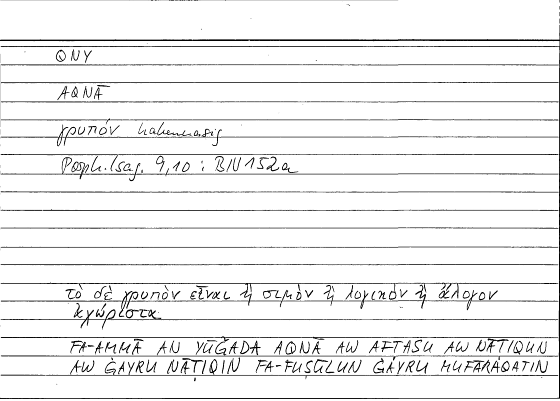 QNY
AQNĀ
γρυπόν hakennasig
Porph. Isag. 9,10 : BN 152a
τὸ δὲ γρυπὸν εἶναι ἢ σιμὸν ἢ λογικὸν ἢ ἄλογον
ἀχώριστα
FA-AMMĀ AN YŪǦADA AQNĀ AW AFṬASU AW NĀṬIQUN
AW ĠAYRU NĀṬIQIN FA-FUṢŪLUN ĠAYRU MUFARAQATIN